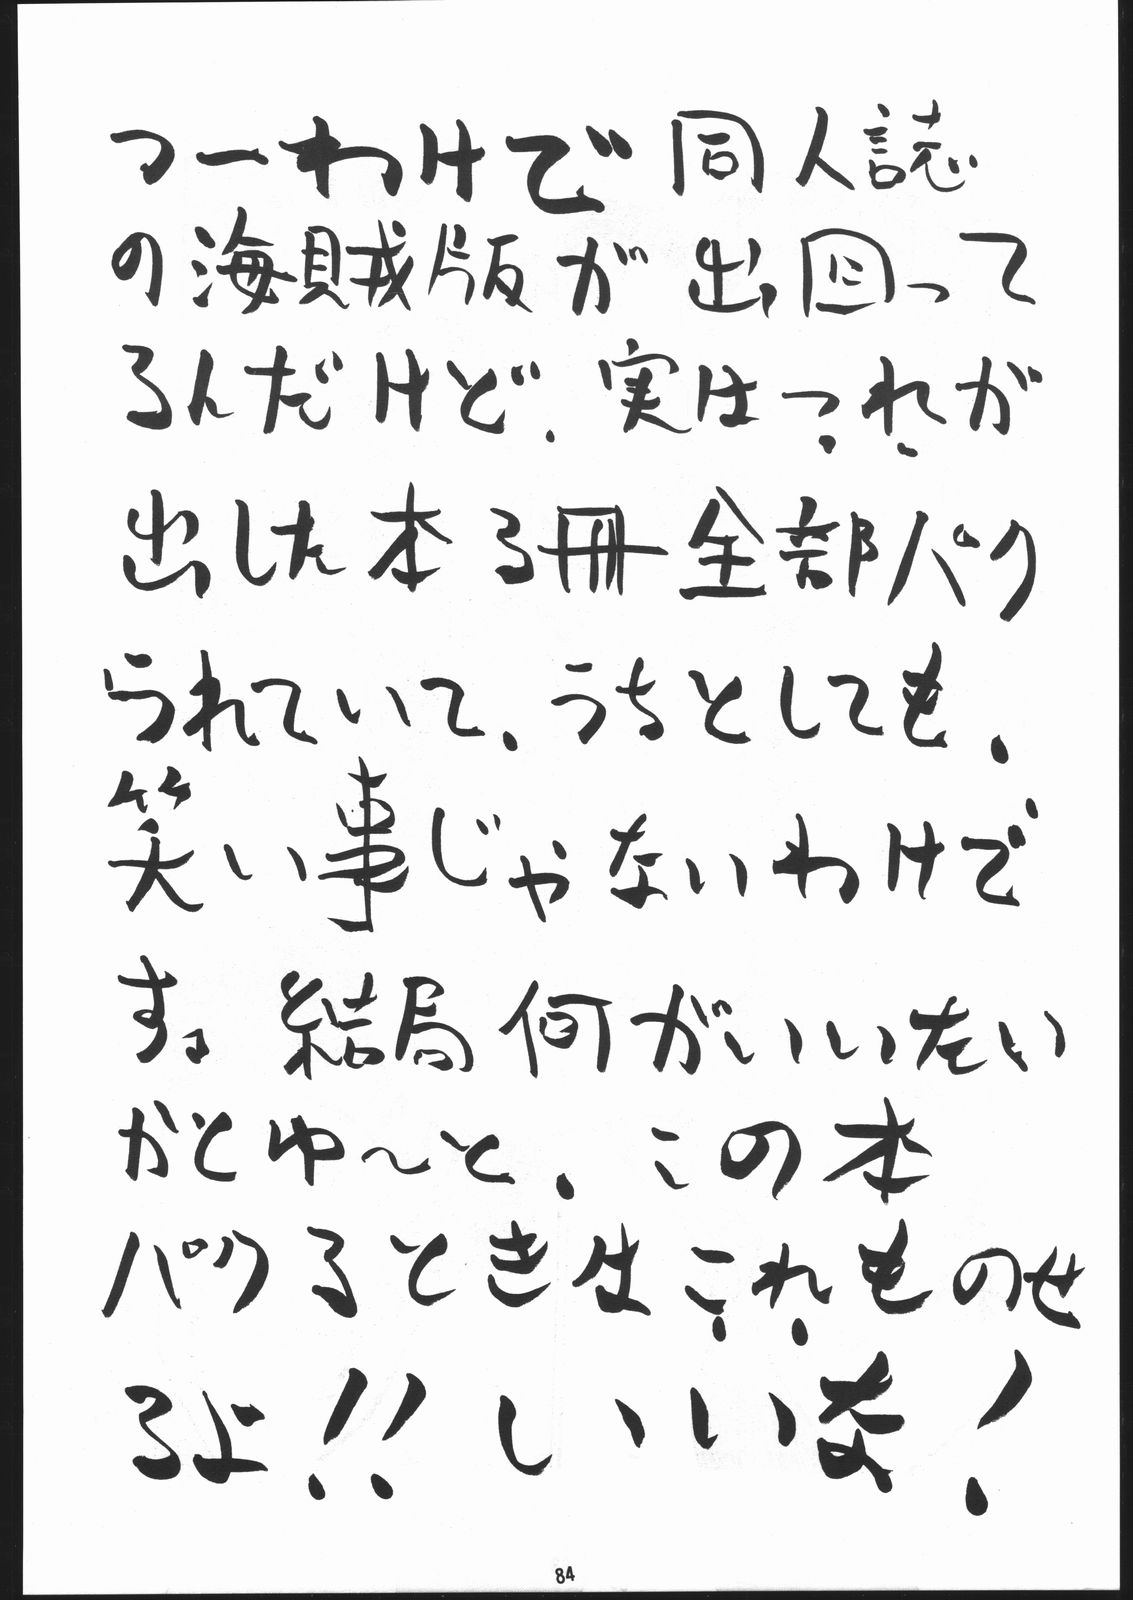 つーわけで同人誌
の海賊版が出回って
るんだけど、実はこれが
出した本3冊全部パク
られていて、うちとしても、
笑い事じゃないわけで
す。結局何がいいたい
かとゆ〜と、この本
パクるときはこれものせ
るよ!!いいな!
84